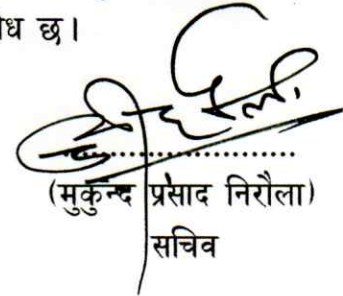 ध छ।
(मुकुन्द प्रसाद निरौला)
सचिव